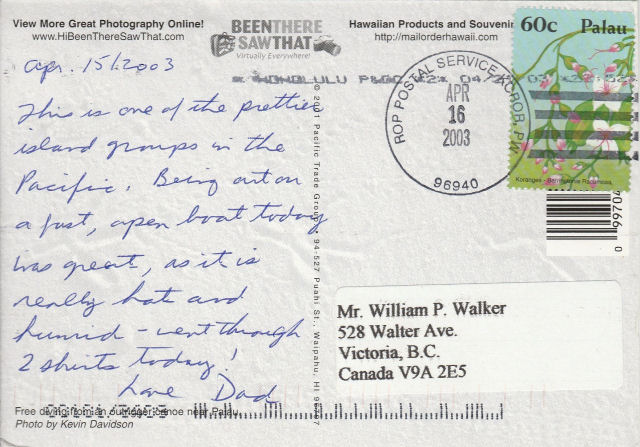 View More Great Photography Online!
www.HiBeenThereSawThat.com
BEENTHERE
SAWTHAT
Virtually Everywhere!
Hawaiian Products and Souvenir
http://mailorderhawaii.com
60c Palau
Koranges
ROP POSTAL SERVICE KOROR, PW
APR
16
2003
96940
HONOLULU P&DC
Apr. 15/2003
This is one of the prettier
island groups in the
Pacific. Being out on
a fast, open boat today
was great, as it is
really hot and
humid - went through
2 shirts today!
Love Dad
© 2001 Pacific Trade Group • 94-527 Puahi St., Waipahu, HI 96797
0 99704
Mr. William P. Walker
528 Walter Ave.
Victoria, B.C.
Canada V9A 2E5
Free diving from an outrigger canoe near Palau.
Photo by Kevin Davidson